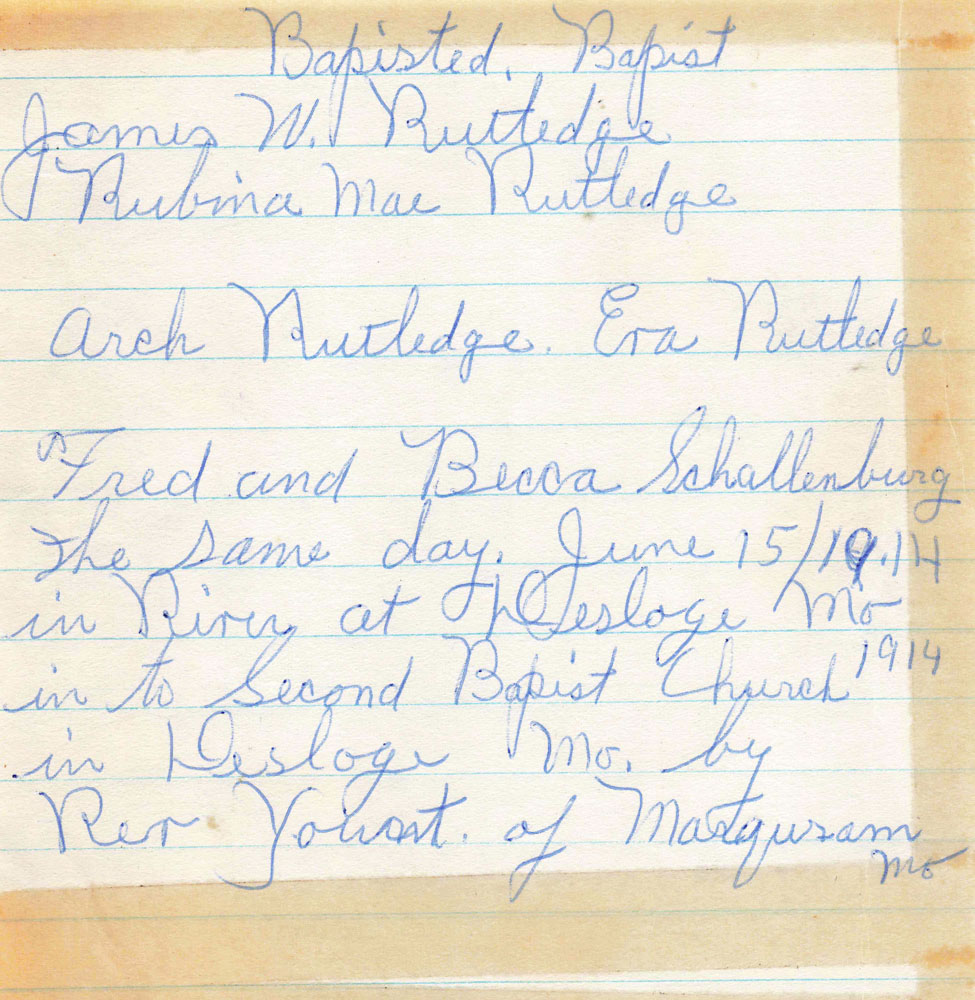 Bapisted. Bapist
James W. Rutledge
Rubina Mae Rutledge
Arch Rutledge. Era Rutledge
Fred and Becca Schallenburg
The same day. June 15/19.14
in River at Desloge Mo
1914
in to Second Bapist Church
in Desloge Mo. by
Rev of
Mo